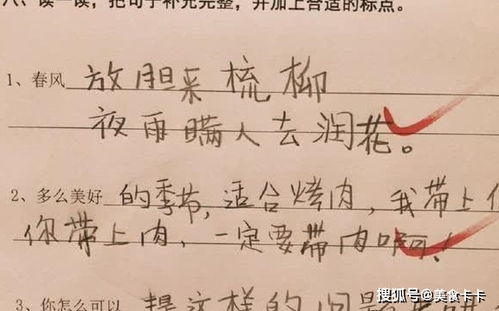 八、读一读，把句子补充完整，并加上合适的标点。
1、春风 放胆采梳柳
夜雨瞒人去润花。
2、多么美好 的季节，适合烤肉，我带上
你带上肉，一定要带肉啊！
3、你怎么可以 提这样的问题
搜狐号@美食卡卡